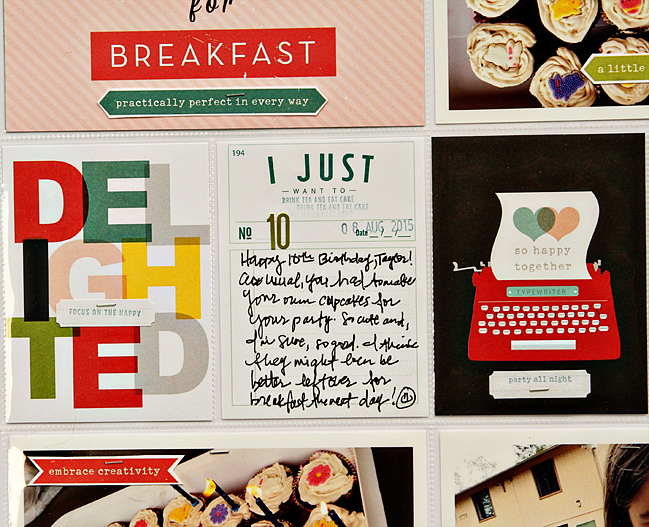 for
BREAKFAST
practically perfect in every way
a little
DEL
IGH
TED
FOCUS ON THE HAPPY
194
I JUST
—WANT TO—
DRINK TEA AND EAT CAKE
DRINK TEA AND EAT CAKE
No 10
Date 08 AUG 2015
Happy 10th Birthday, Taylor!
As usual, you had to make
your own cupcakes for
your party. So cute and,
I'm sure, so good. I think
they might even be
better leftover for
breakfast the next day!
so happy
together
TYPEWRITER
party all night
embrace creativity